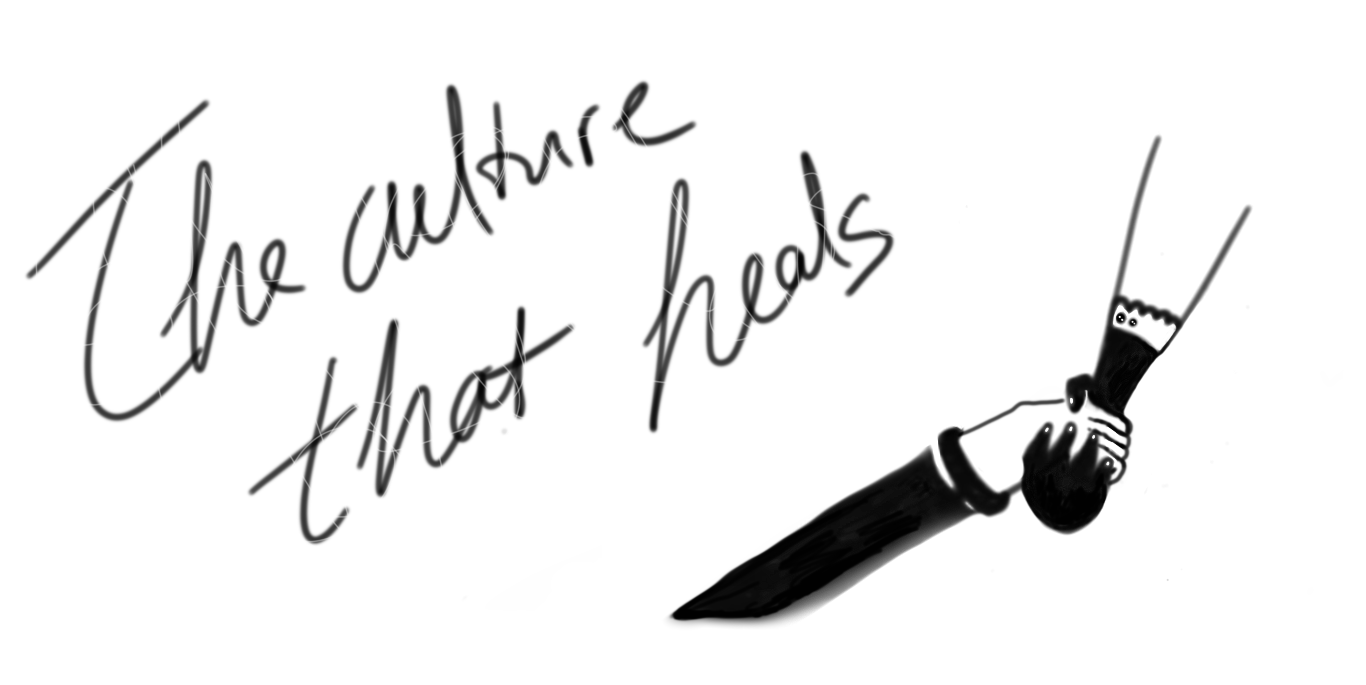 The culture
that heals